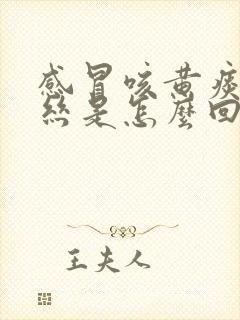 感冒咳黄痰
丝是怎麼回
王夫人